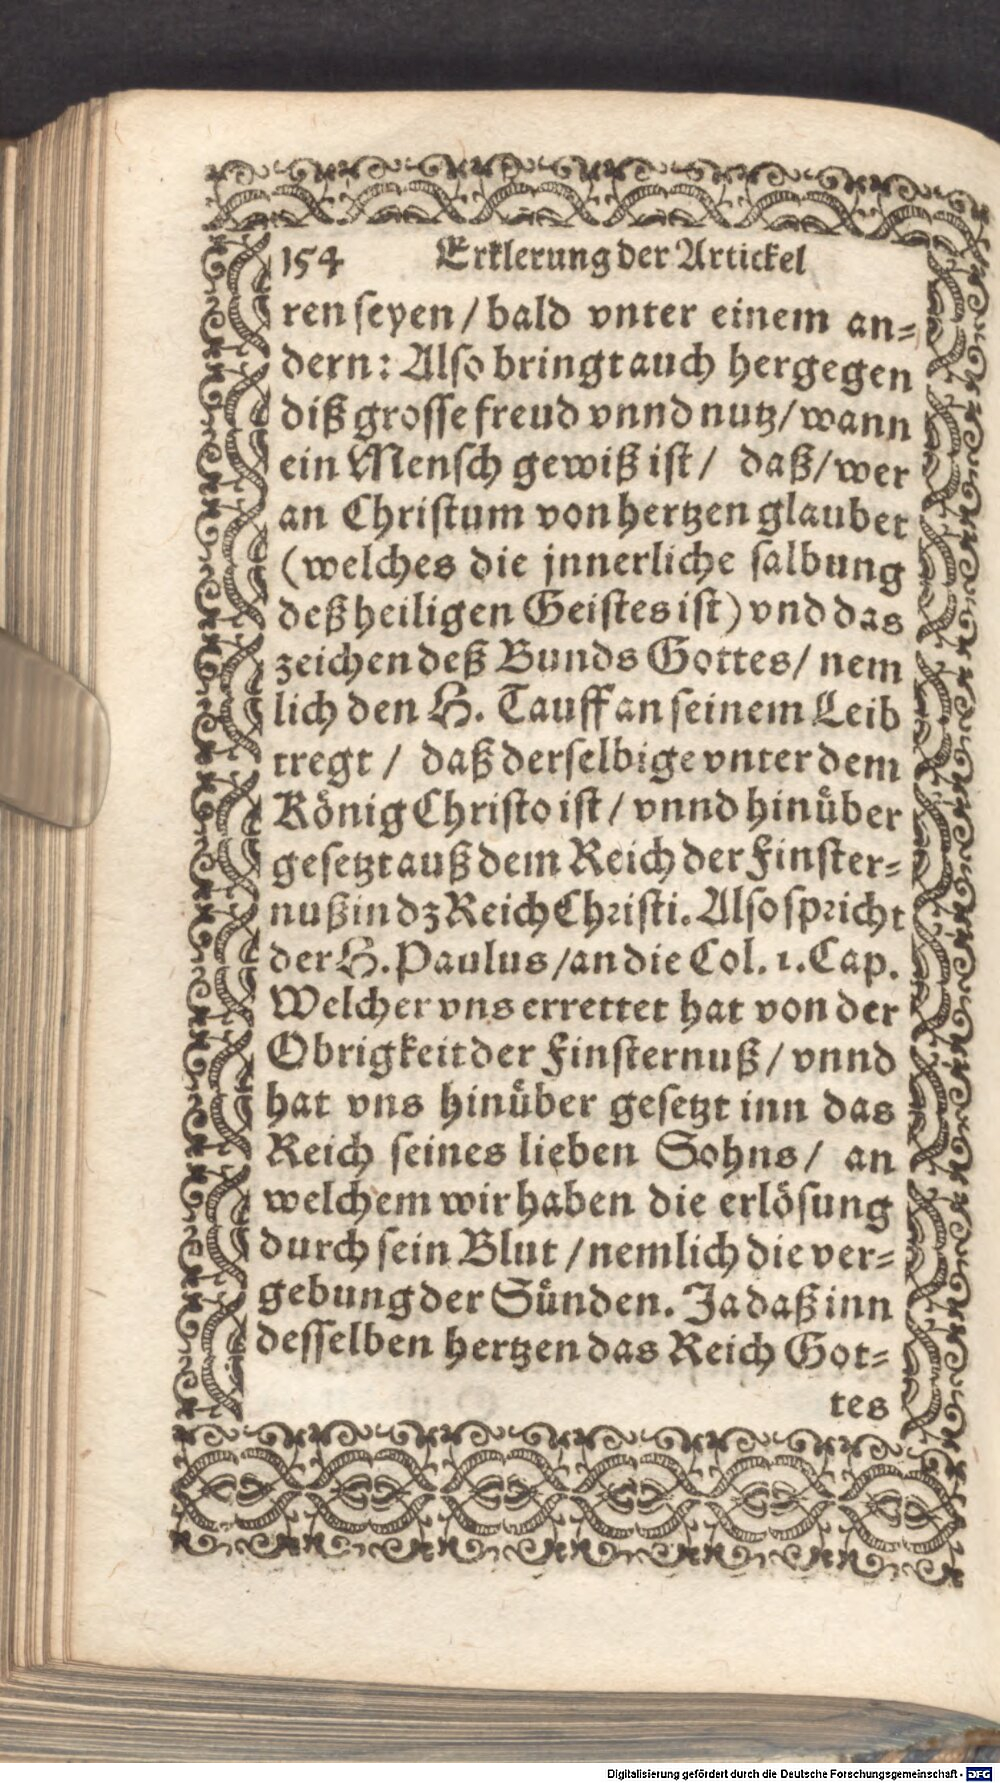 154 Erklerung der Artickel
ren seyen / bald vnter einem an-
dern: Also bringt auch hergegen
diß grosse freud vnnd nutz / wann
ein Mensch gewiß ist / daß / wer
an Christum von hertzen glaubet
(welches die jnnerliche salbung
deß heiligen Geistes ist) vnd das
zeichen deß Bunds Gottes / nem
lich den H. Tauff an seinem Leib
tregt / daß derselbige vnter dem
König Christo ist / vnnd hinüber
gesetzt auß dem Reich der Finster-
nuß in dz Reich Christi. Also spricht
der H. Paulus / an die Col. 1. Cap.
Welcher vns errettet hat von der
Obrigkeit der Finsternuß / vnnd
hat vns hinüber gesetzt inn das
Reich seines lieben Sohns / an
welchem wir haben die erlösung
durch sein Blut / nemlich die ver-
gebung der Sünden. Ja daß inn
desselben hertzen das Reich Got-
tes
Digitalisierung gefördert durch die Deutsche Forschungsgemeinschaft - DFG